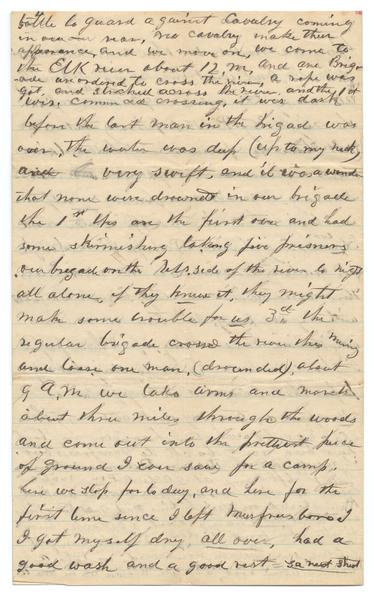 battle to guard against Cavalry coming
in our rear, no cavalry make their
appearance, and we move on, we come to
the Elk river about 12, M, and are Brig-
ade are ordered to cross the river, a rope was
got, and streched across the river, and the 1st
Wis. commenced crossing, it was dark
before the last man in the brigad was
over, the water was deep (up to my neck,
and very swift, and it was a wonder
that none were drowned in our brigade
the 1st Wis are the first over and had
some skirmishing taking five prisners
our brigad on the side of the river to night
all alone, if they knew it, they might
make some trouble for us, 3rd the
regular brigade crossed the river this Morning
and loose one man, (drounded), about
9 A,M, we take arms and march
about three miles through the woods
and come out into the prettiest piece
of ground I ever saw for a camp.
here we stop for to day, and here for the
first time since I left Murfresboro I
I got myself dry all over, had a
good wash and a good rest